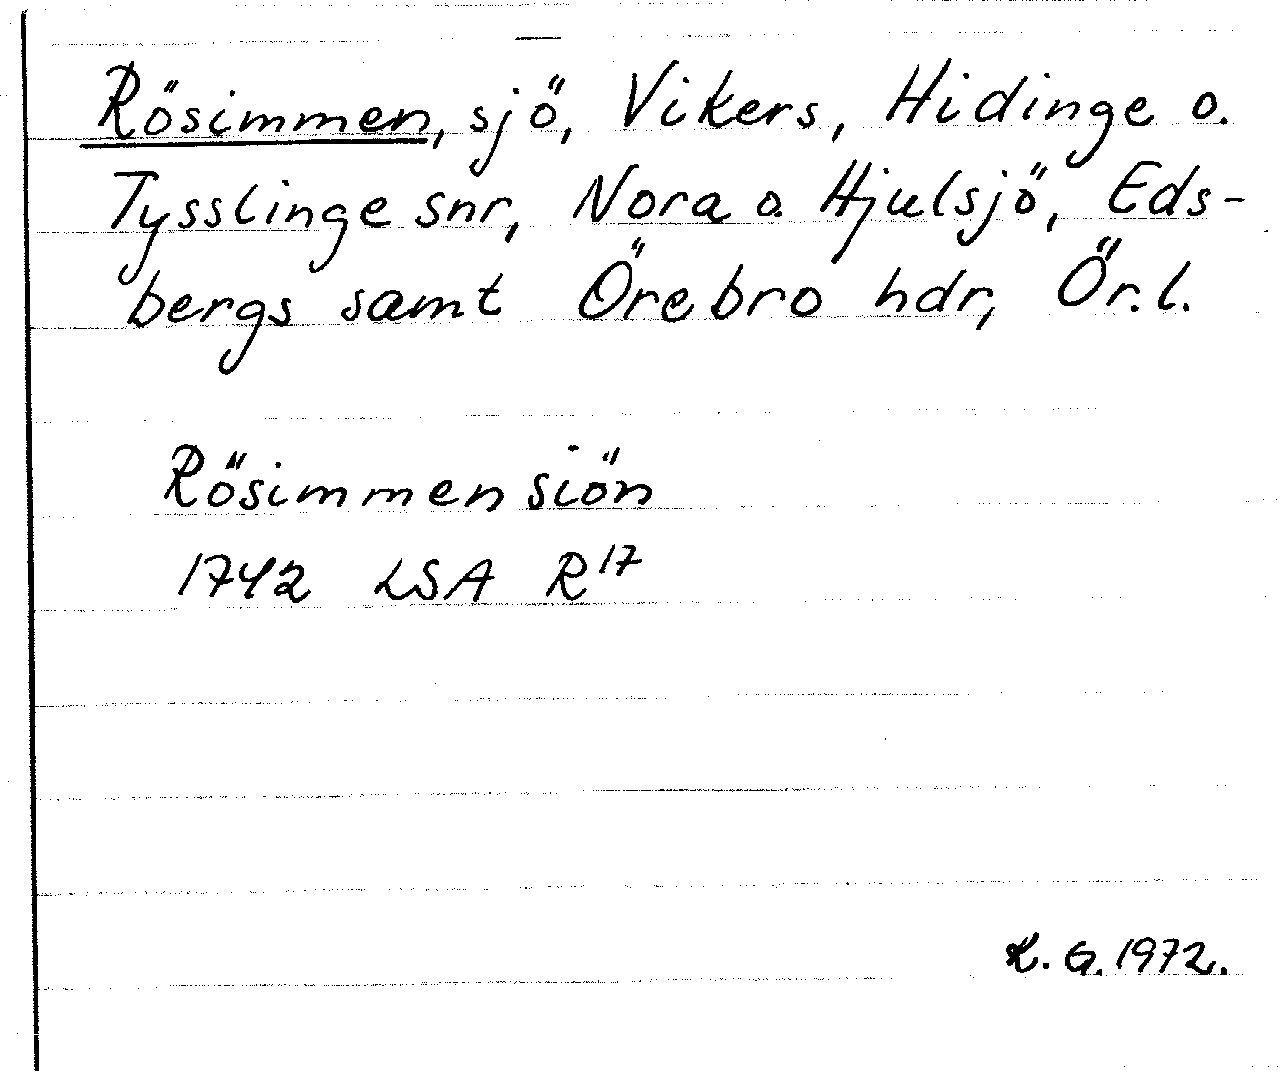 Rösimmen, sjö, Vikers, Hidinge o.
Tysslinge snr, Nora o. Hjulsjö, Eds-
bergs samt Örebro hdr, Ör.l.
Rösimmen siön
1742 LSA R17
K. G. 1972.